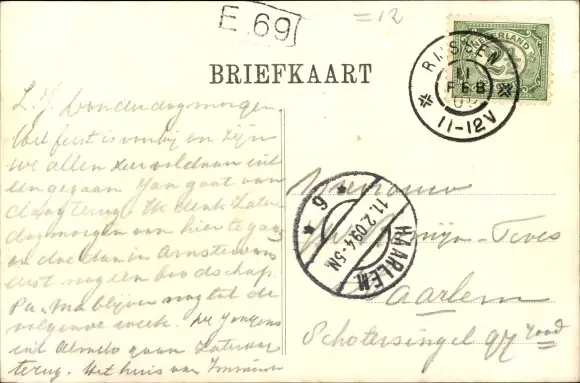 E.69
=12
BRIEFKAART
NEDERLAND
RIJSSEN
11
FEB
09
11-12V
L. J. Donderdagmorgen.
Het feest is voorbij en zijn
we allen zeer voldaan uit
eengegaan. Jan gaat van
daag terug. Ik denk Zater
dagmorgen van hier te gaan
en doe dan in Amsterdam
eerst nog een boodschap.
Pa, Ma blijven nog tot de
volgende week. De jongens
uit Almelo gaan Zaterdag
terug. Het huis van
Mevrouw
Teves
Haarlem
Schotersingel 97 rood
HAARLEM
11.2.09.4-5N.
6